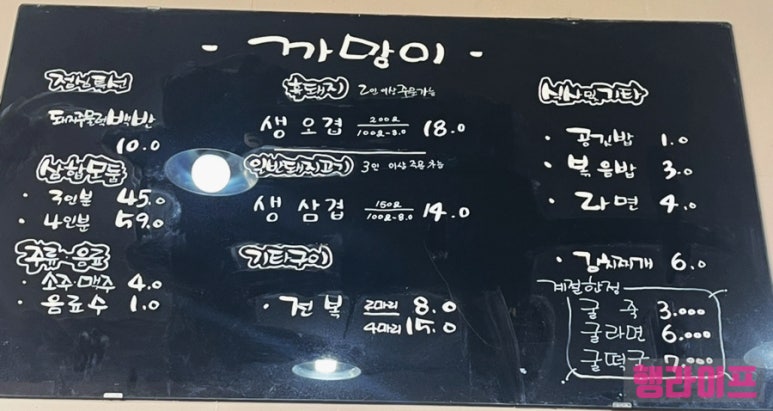 - 까망이 -
점심특선
돼지주물럭백반
10.0
삼합모둠
· 3인분 45.0
· 4인분 59.0
주류·음료
· 소주·맥주 4.0
· 음료수 1.0
흑돼지 2인 이상 주문가능
생 오겹 200g 18.0
100g-9.0
일반돼지고기 3인 이상 주문 가능
생 삼겹 150g 14.0
기타구이
· 전복 2마리 8.0
4마리 15.0
식사및기타
· 공긴밥 1.0
· 볶음밥 3.0
· 라면 4.0
· 김치찌개 6.0
계절한정
굴 죽 3.000
굴라면 6.000
굴떡국 7.000
행라이프